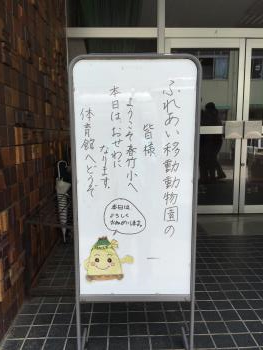 ふれあい移動動物園の
皆様
ようこそ春竹小へ
本日はおせわに
なります。
体育館へどうぞ
本日は
よろしく
おねがいします。